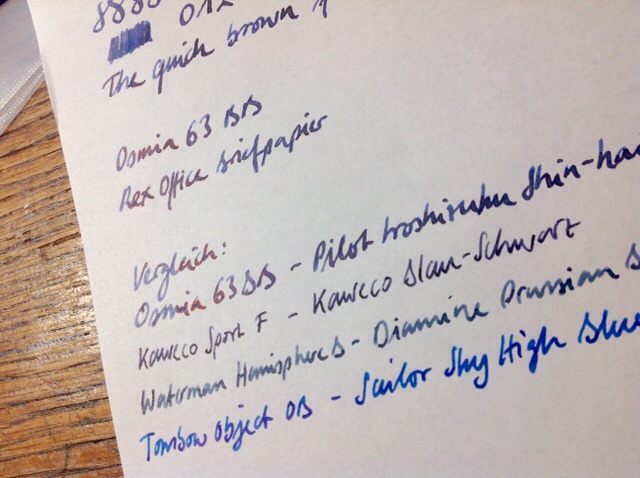 The quick brown f
Osmia 63 BB
Rex Office Briefpapier
Vergleich:
Osmia 63 BB - Pilot Iroshizuku Shin-ka
Kaweco Sport F - Kaweco Blau-Schwarz
Waterman Hemisphere B - Diamine Prussian B
Tombow Object OB - Sailor Sky High Blue